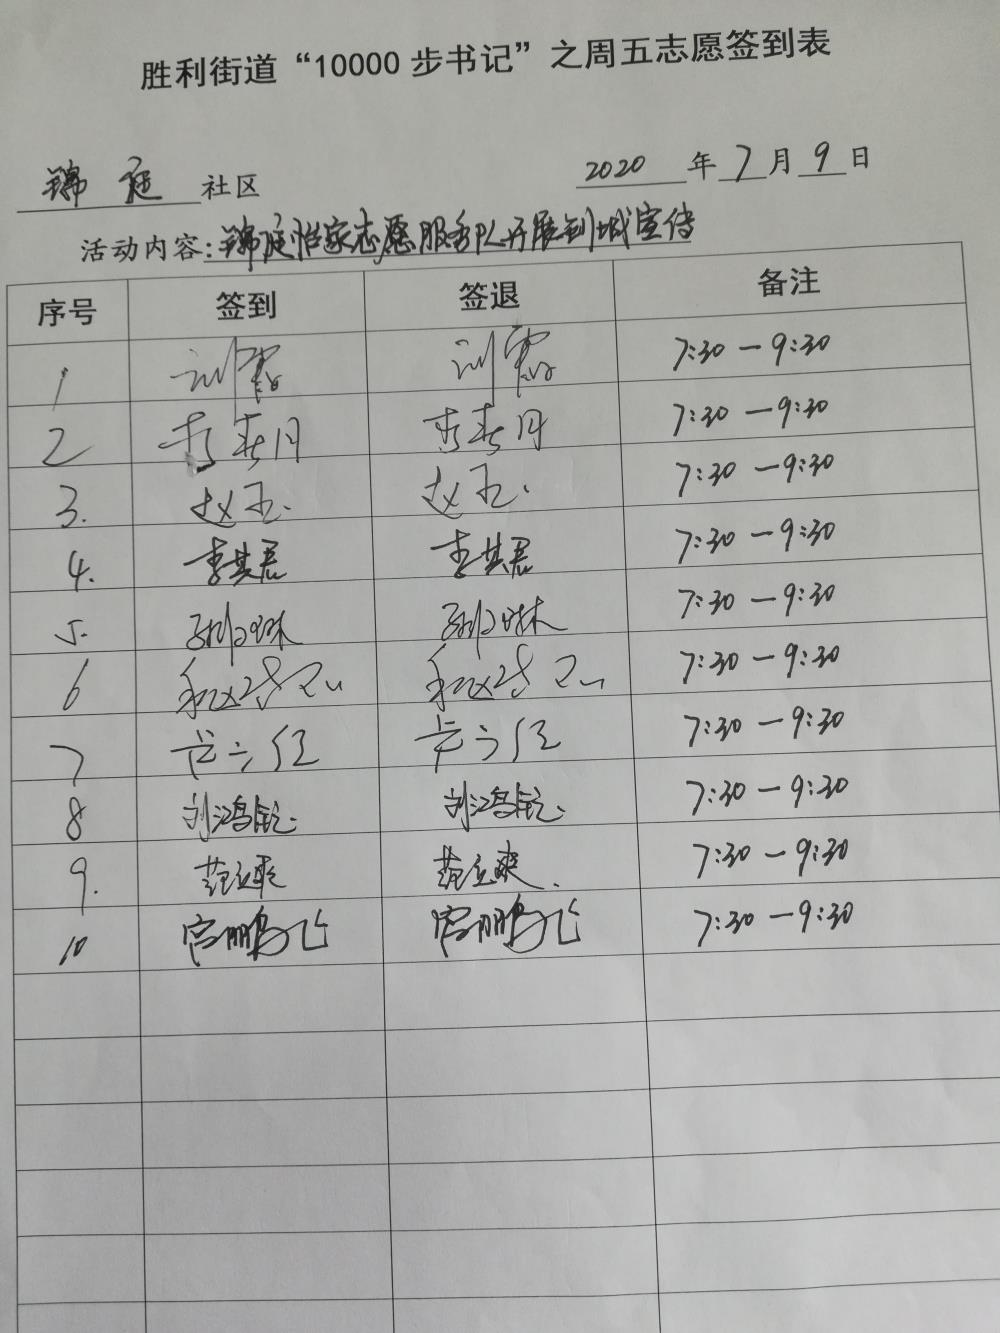 胜利街道“10000 步书记”之周五志愿签到表
锦庭社区 2020 年 7 月 9 日
活动内容:锦庭怡家志愿服务队开展创城宣传
序号 签到 签退 备注
1 7:30 — 9:30
2 李春月 李春月 7:30 — 9:30
3. 赵玉 赵玉 7:30 — 9:30
4. 李其君 李其君 7:30 — 9:30
5. 7:30 — 9:30
6 7:30 — 9:30
7 7:30 — 9:30
8 刘鸿钰 刘鸿钰 7:30 — 9:30
9. 范立爽 范立爽 7:30 — 9:30
10 宫鹏飞 宫鹏飞 7:30 — 9:30